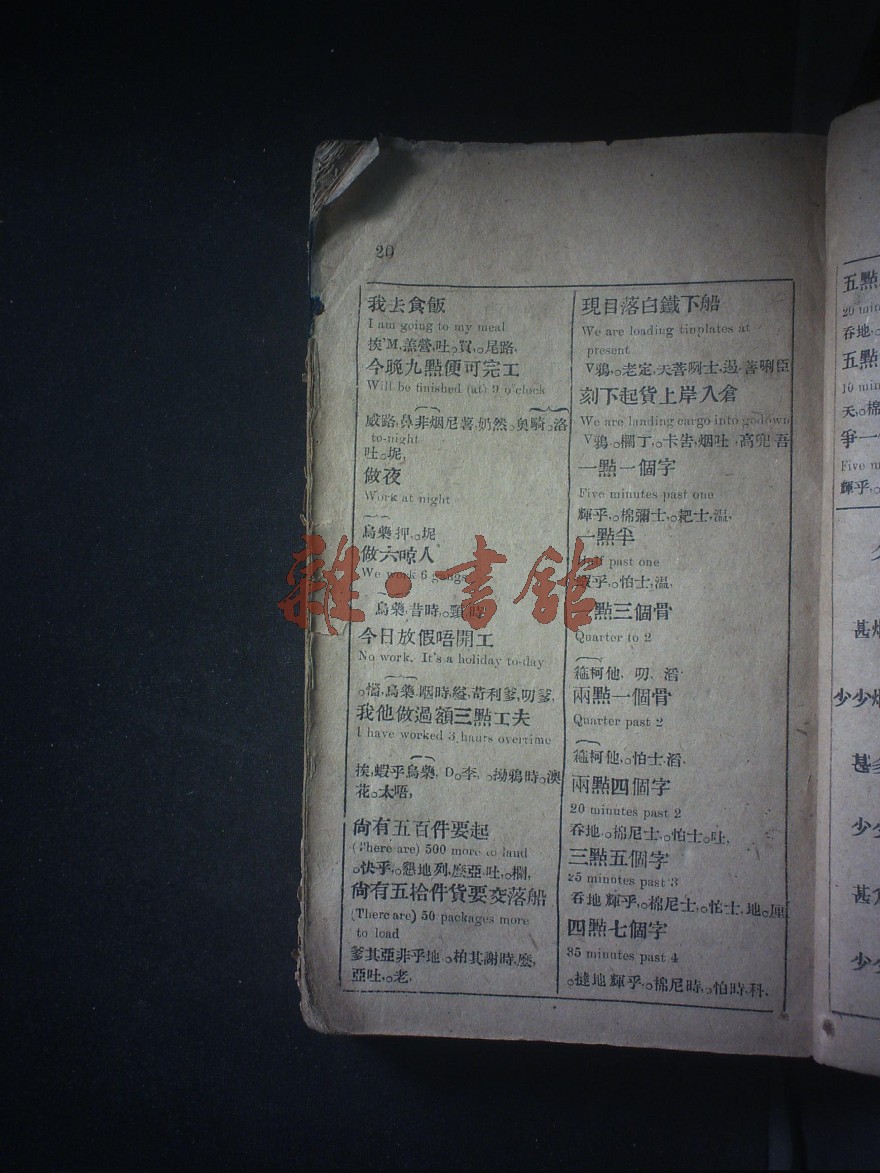 20
我去食飯
I am going to my meal
挨'M,羔營,吐。買,。尾路,
今晚九點便可完工
Will be finished (at) 9 o'clock
威路,鼻非烟尼薯,奶然。奥騎。洛
to-night
吐。坭,
做夜
Work at night
烏藥,押,。坭
做六晾人
We work 6 gangs
烏藥,昔時,
今日放假唔開工
No work. It's a holiday to-day
烏藥,時,苛利爹,叨爹,
我他做過額三點工夫
I have worked 3 hours overtime
挨,蝦乎烏藥, D。李,。拗鴉時。澳
花。太唔,
尙有五百件要起
(There are) 500 more to land
。快乎,。懇地列,麽亞,吐,。欄,
尙有五拾件貨要交落船
(There are) 50 packages more
to load
爹其亞非乎地。柏其謝時,麽,
亞吐,。老,
現目落白鐵下船
We are loading tinplates at
present
V鴉,。老定,天薯咧士,遏,薯唎臣
刻下起貨上岸入倉
We are landing cargo into godown
V鴉。欄丁,。卡告,烟吐,高兜吾
一點一個字
Five minutes past one
輝乎,。棉彌士,。耙士,溫,
一點半
Half past one
蝦乎,。怕士,溫,
點三個骨
Quarter to 2
箍柯他, 叨, 滔,
兩點一個骨
Quarter past 2
箍柯他,。怕士,滔,
兩點四個字
20 minutes past 2
吞地。棉尼士,。怕士。吐,
三點五個字
25 minutes past 3
吞地輝乎,。棉尼士,。怕士,地。厘
四點七個字
35 minutes past 4
。撻地輝乎,。棉尼時,。怕時,科,
五點
20 min
吞地
五點
10 min
天,。棉
爭一
Five m
輝乎,
甚
少少
甚
少
甚
少
雜·書館